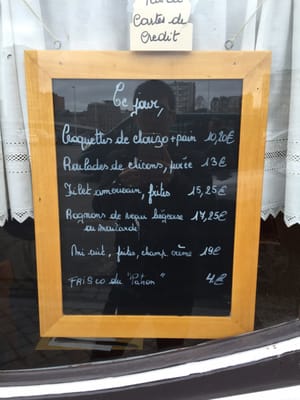 Cartes de
Credit
Ce jour,
Croquettes de chorizo + pain 10,20€
Roulades de chicons, purée 13€
Filet américain, frites 15,25€
Rognons de veau liégeoise 17,25€
ou moutarde
Mi cuit, frites, champ. crème 19€
FRISCO du "Patron" 4€